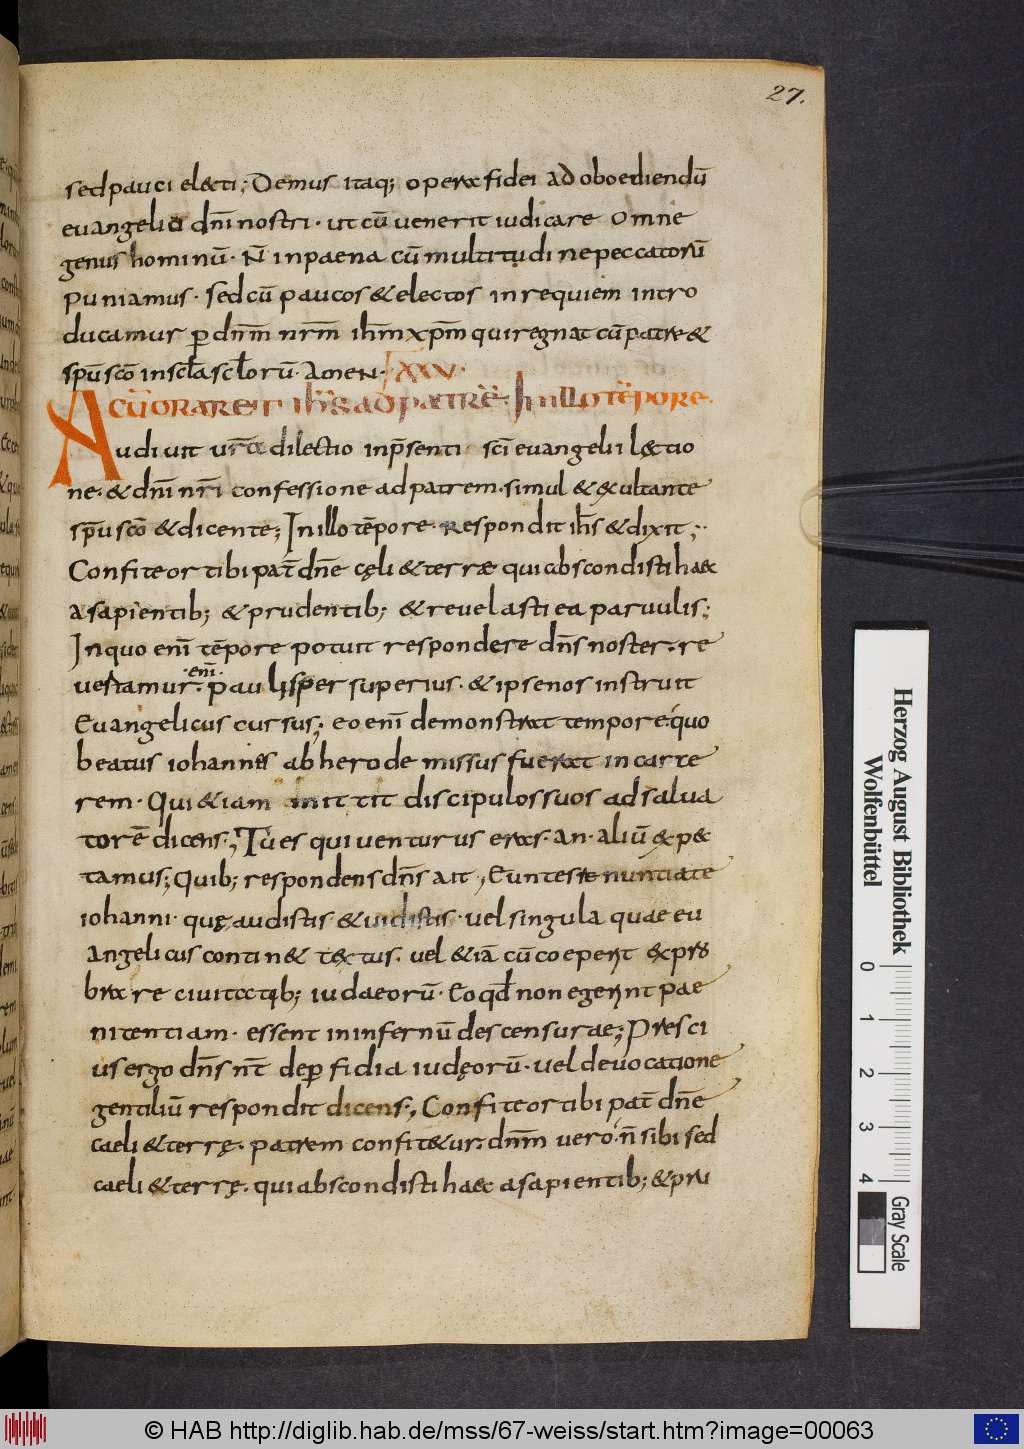 27.
sed pauci electi; Demus itaq; operae fidei ad oboediendū
evangelio dn̄i nostri · ut cū venerit iudicare omne
genus hominū · N̄ in paena cū multitudine peccatorū
puniamus · sed cū paucos & electos in requiem intro
ducamur p̱ dn̄m nr̄m ih̄m xp̄m qui regnat cū patre &
sp̄u sc̄o in scl̄a scl̄orū · amen · XXV ·
Acū oraret ih̄s ad patrē · In illo tēpore ·
Audivit vr̄a dilectio in p̄senti sc̄i evangelii lęctio
ne · & dn̄i nr̄i confessione ad patrem · simul & exultante
sp̄u sc̄o & dicente; In illo tēpore · Respondit ih̄s & dixit;
Confiteor tibi pat̄ dn̄e cęli & terrae qui abscondisti haec
a sapientib; & prudentib; & revelasti ea parvulis;
In quo eni̅ tēpore potuit respondere dn̄s noster · re
vertamur · eni̅ · paulisper superius · & ipse nos instruit
Evangelicus cursus; eo eni̅ demonstrat tempore quo
beatus iohannes ab herode missus fuerat in carce
rem · Qui & iam mittit discipulos suos ad salva
torē dicens; Tu es qui venturus eras · an · aliū expec
tamus; Quib; respondens dn̄s ait; Euntes renuntiate
iohanni · quę audistis & vidistis · vel singula quae eu
angelicus contin& textus · vel & iā cū coeperit expro
brare civitatib; iudaeorū · Eo qd̄ non egerint pae
nitentiam · essent in infernū descensurae; Presci
us ergo dn̄s nt̄ de p̱fidia iudęorū · vel de vocatione
gentiliū respondit dicens; Confiteor tibi pat̄ dn̄e
caeli & terrę · patrem confitetur · dn̄m vero · n̄ sibi sed
caeli & terrę · qui abscondisti haec a sapientib; & pru
Herzog August Bibliothek
Wolfenbüttel
0 1 2 3 4
Gray Scale
© HAB http://diglib.hab.de/mss/67-weiss/start.htm?image=00063